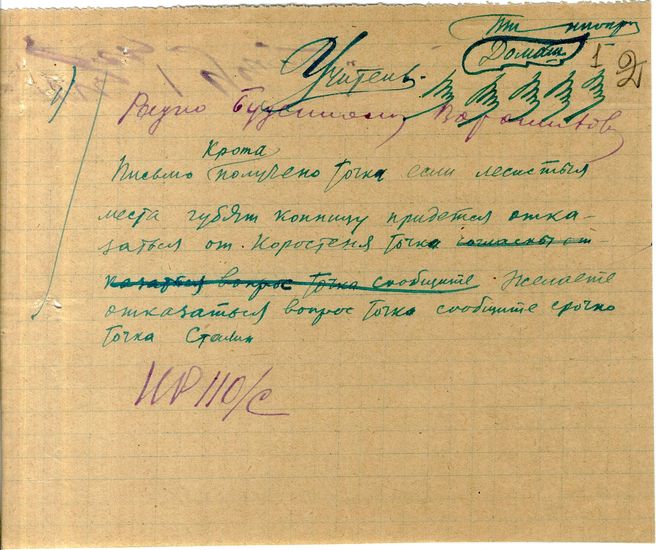 Домаш
1 2
Учитель.
1)
Радио Буденному Ворошилову
Крота
Письмо получено Точка если лесистыя
места губят конницу придется отка-
заться от Коростеня Точка согласны от
казаться вопрос Точка сообщите Желаете
отказаться вопрос Точка сообщите срочно
Точка Сталин
НР 110/с